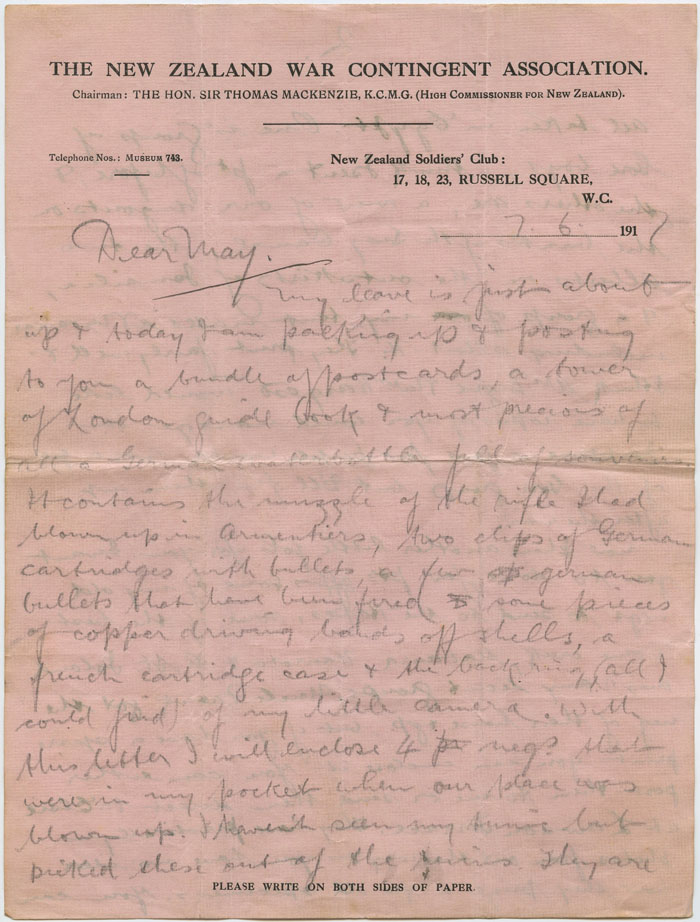 THE NEW ZEALAND WAR CONTINGENT ASSOCIATION.
Chairman: THE HON. SIR THOMAS MACKENZIE, K.C.M.G. (HIGH COMMISSIONER FOR NEW ZEALAND).
Telephone Nos.: MUSEUM 743.
New Zealand Soldiers' Club:
17, 18, 23, RUSSELL SQUARE,
W.C.
7. 6. 1917
Dear May.
My leave is just about
up & today I am packing up & posting
to you a bundle of postcards, a tower
of London guide book & most precious of
all a German waterbottle full of souvenirs.
It contains the muzzle of the rifle I had
blown up in Armentiers, two clips of German
cartridges with bullets, a few german
bullets that have been fired some pieces
of copper driving bands off shells, a
french cartridge case & the back ring (all I
could find) of my little camera. With
this letter I will enclose 4 negs that
were in my pocket when our place was
blown up. I haven't seen my tunic but
picked these out of the ruins. They are
PLEASE WRITE ON BOTH SIDES OF PAPER.